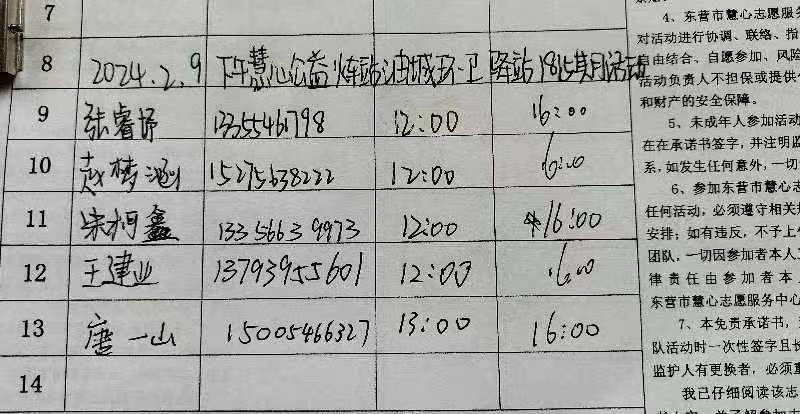 7
8 2024.2.9 下午慧心公益 油城环卫驿站1815期活动
9 张睿 13355461798 12:00 16:00
10 赵梦涵 15275638222 12:00 16:00
11 宋柯鑫 13356639973 12:00 16:00
12 王建业 13793955601 12:00 16:00
13 唐一山 15005466327 13:00 16:00
14
4、东营市慧心志愿服务
对活动进行协调、联络、指
自由结合、自愿参加、风险
活动负责人不担保或提供
和财产的安全保障。
5、未成年人参加活动
在在承诺书签字，并注明监
系，如发生任何意外，一切
6、参加东营市慧心志
任何活动，必须遵守相关
安排；如有违反，不予上
团队，一切因参加者本人
律责任由参加者本人
东营市慧心志愿服务中心
7、本免责承诺书，
队活动时一次性签字且长
监护人有更换者，必须重
我已仔细阅读该志